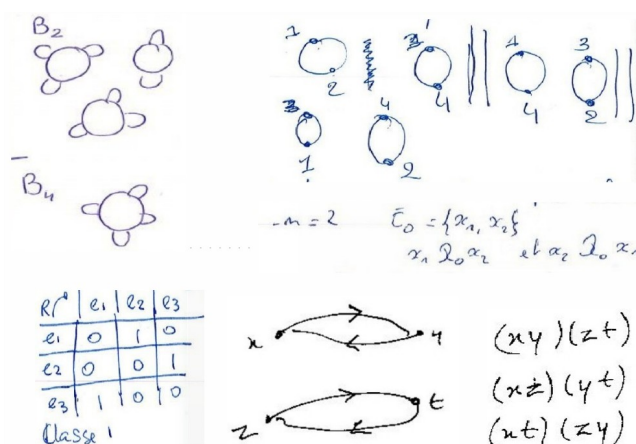 B₂
B₄
1 2
4
1 4
3 2
1
4 2
n = 2 E₀ = {x₁, x₂}
x₁ R₀ x₂ et x₂ R₀ x₁
e1 e2 e3
e1 0 1 0
e2 0 0 1
e3 1 0 0
Classe 1
x y
z t
(xy)(zt)
(xz)(yt)
(xt)(zy)